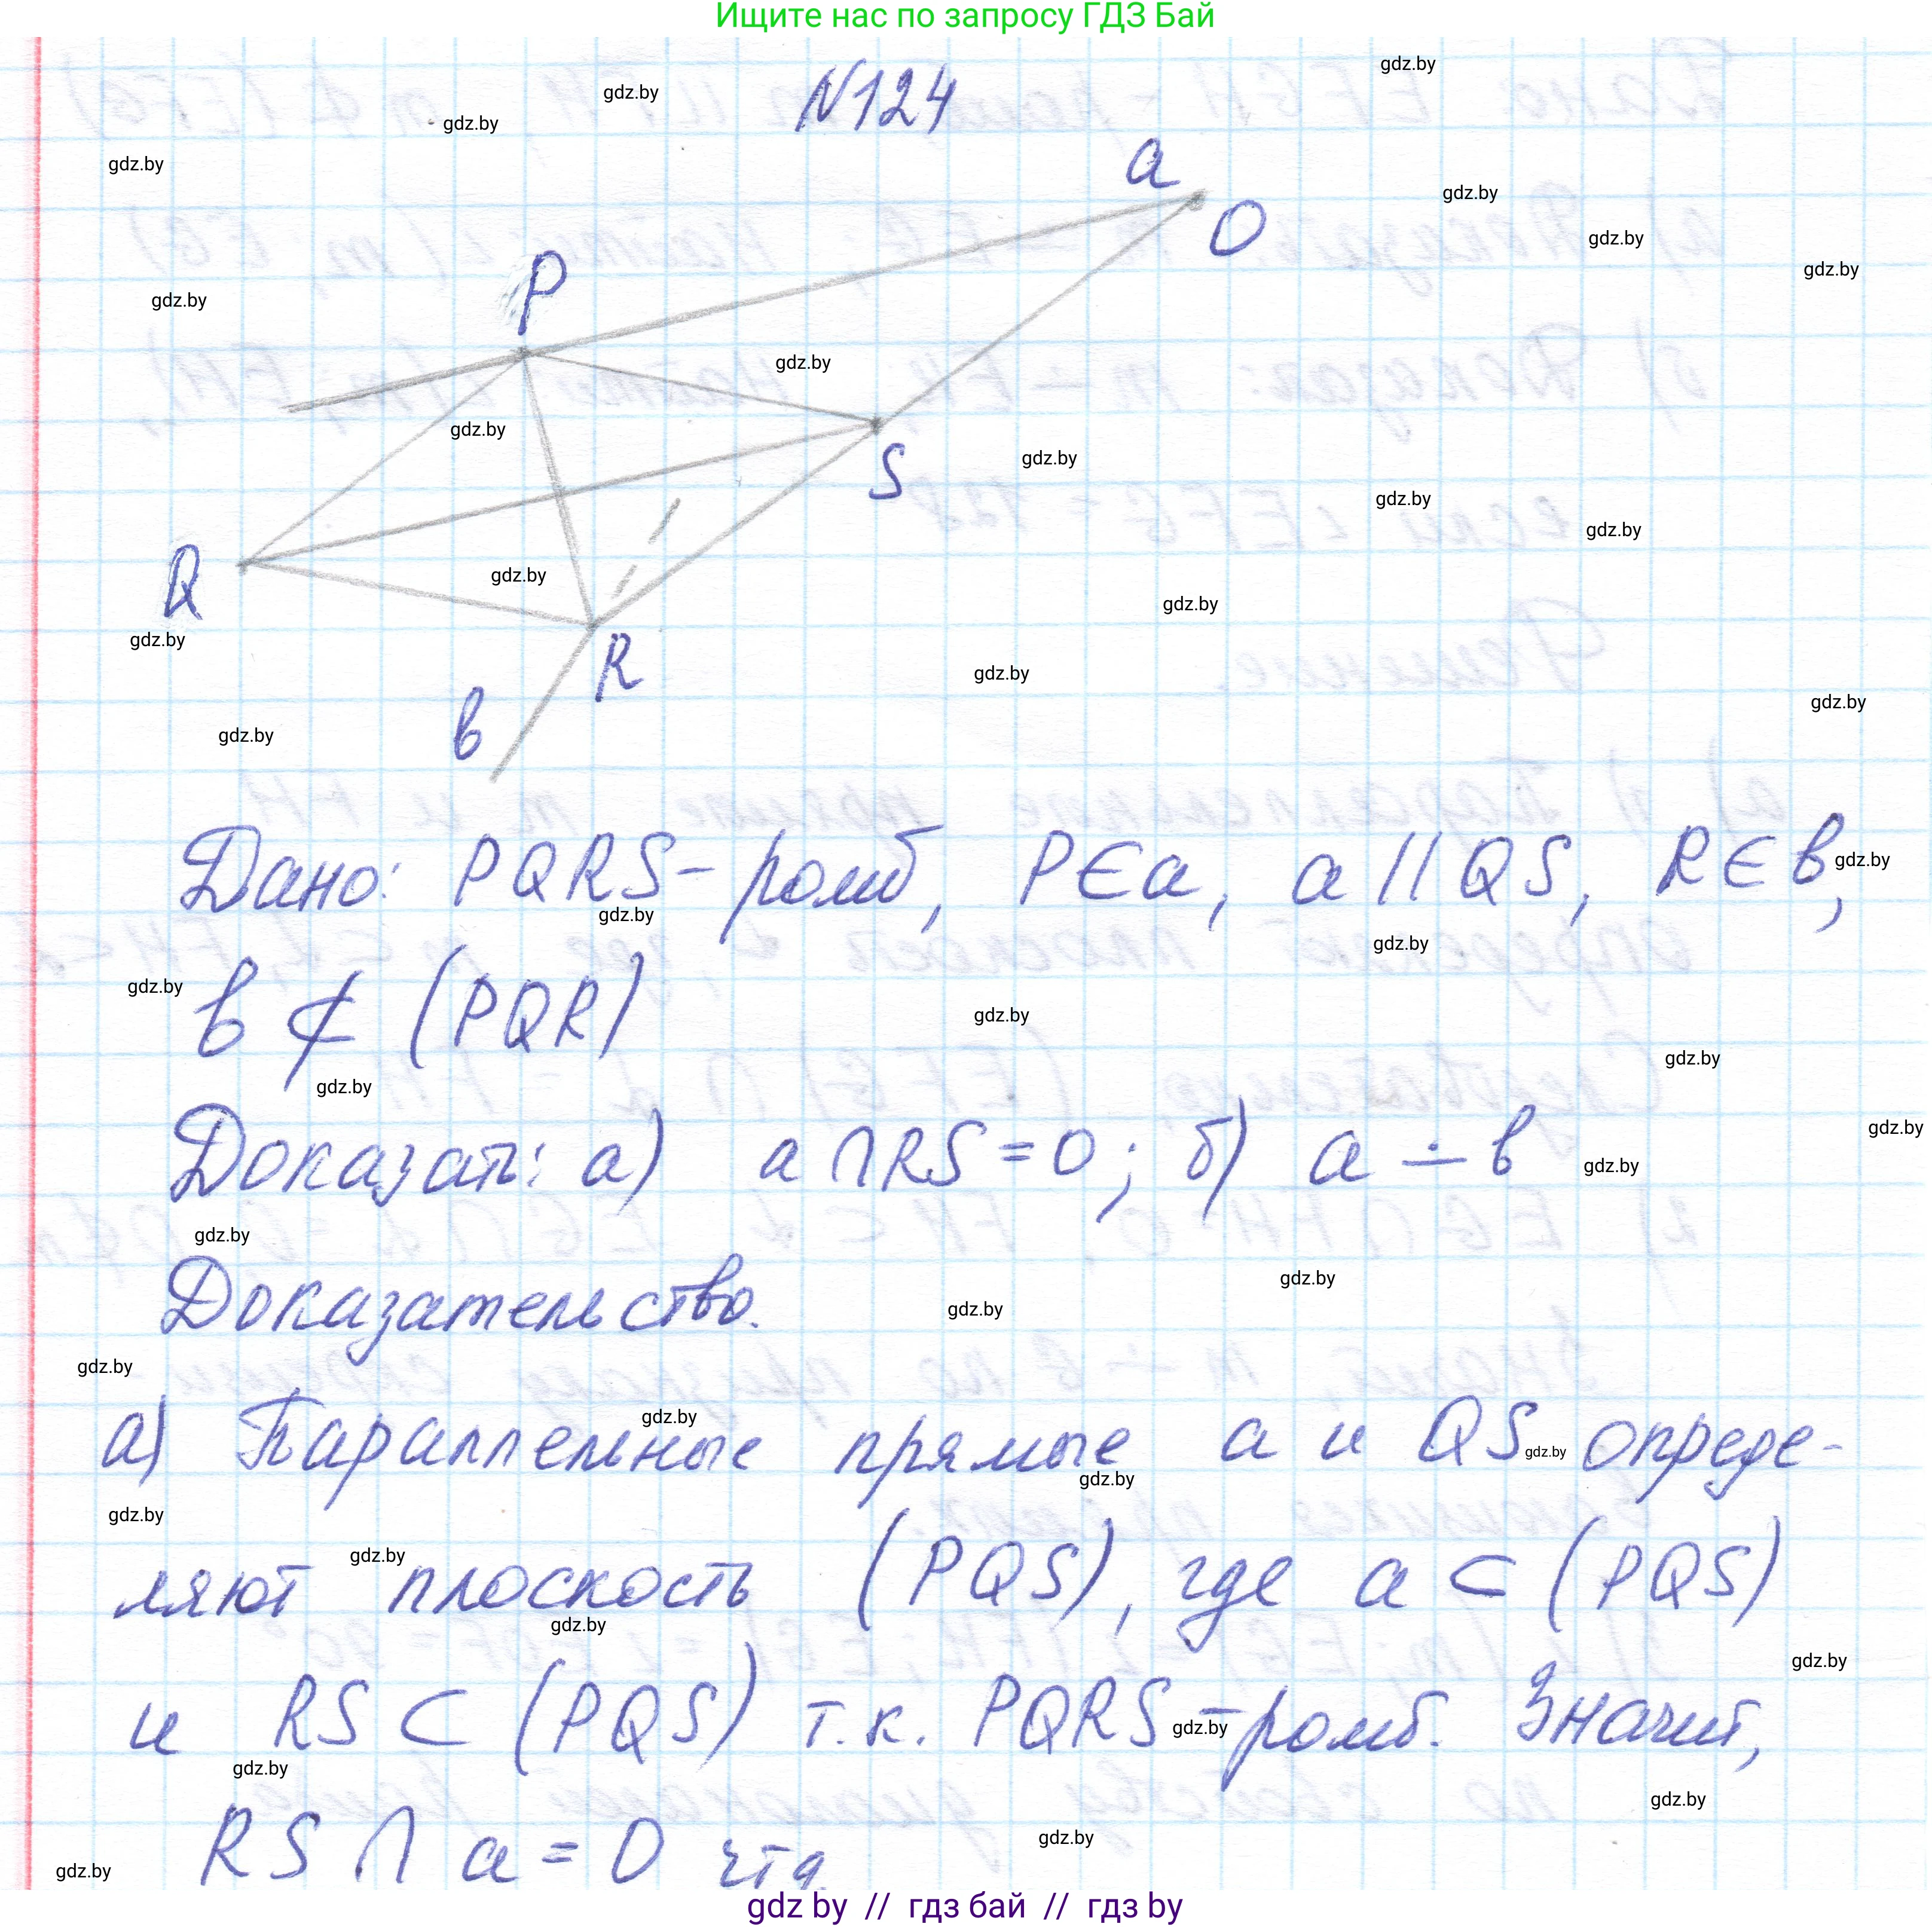 Ищите нас по запросу ГДЗ Бай
N124
a
O
P
S
Q
R
в
Дано: PQRS – ромб, P∈a, a || QS, R∈в,
в ⊄ (PQR)
Доказать: а) a ∩ RS = O; б) a ∸ в
Доказательство.
а) Параллельные прямые a и QS опреде-
ляют плоскость (PQS), где a ⊂ (PQS)
и RS ⊂ (PQS) т.к. PQRS – ромб. Значит,
RS ∩ a = O чтд.
gdz by // гдз бай // гдз by